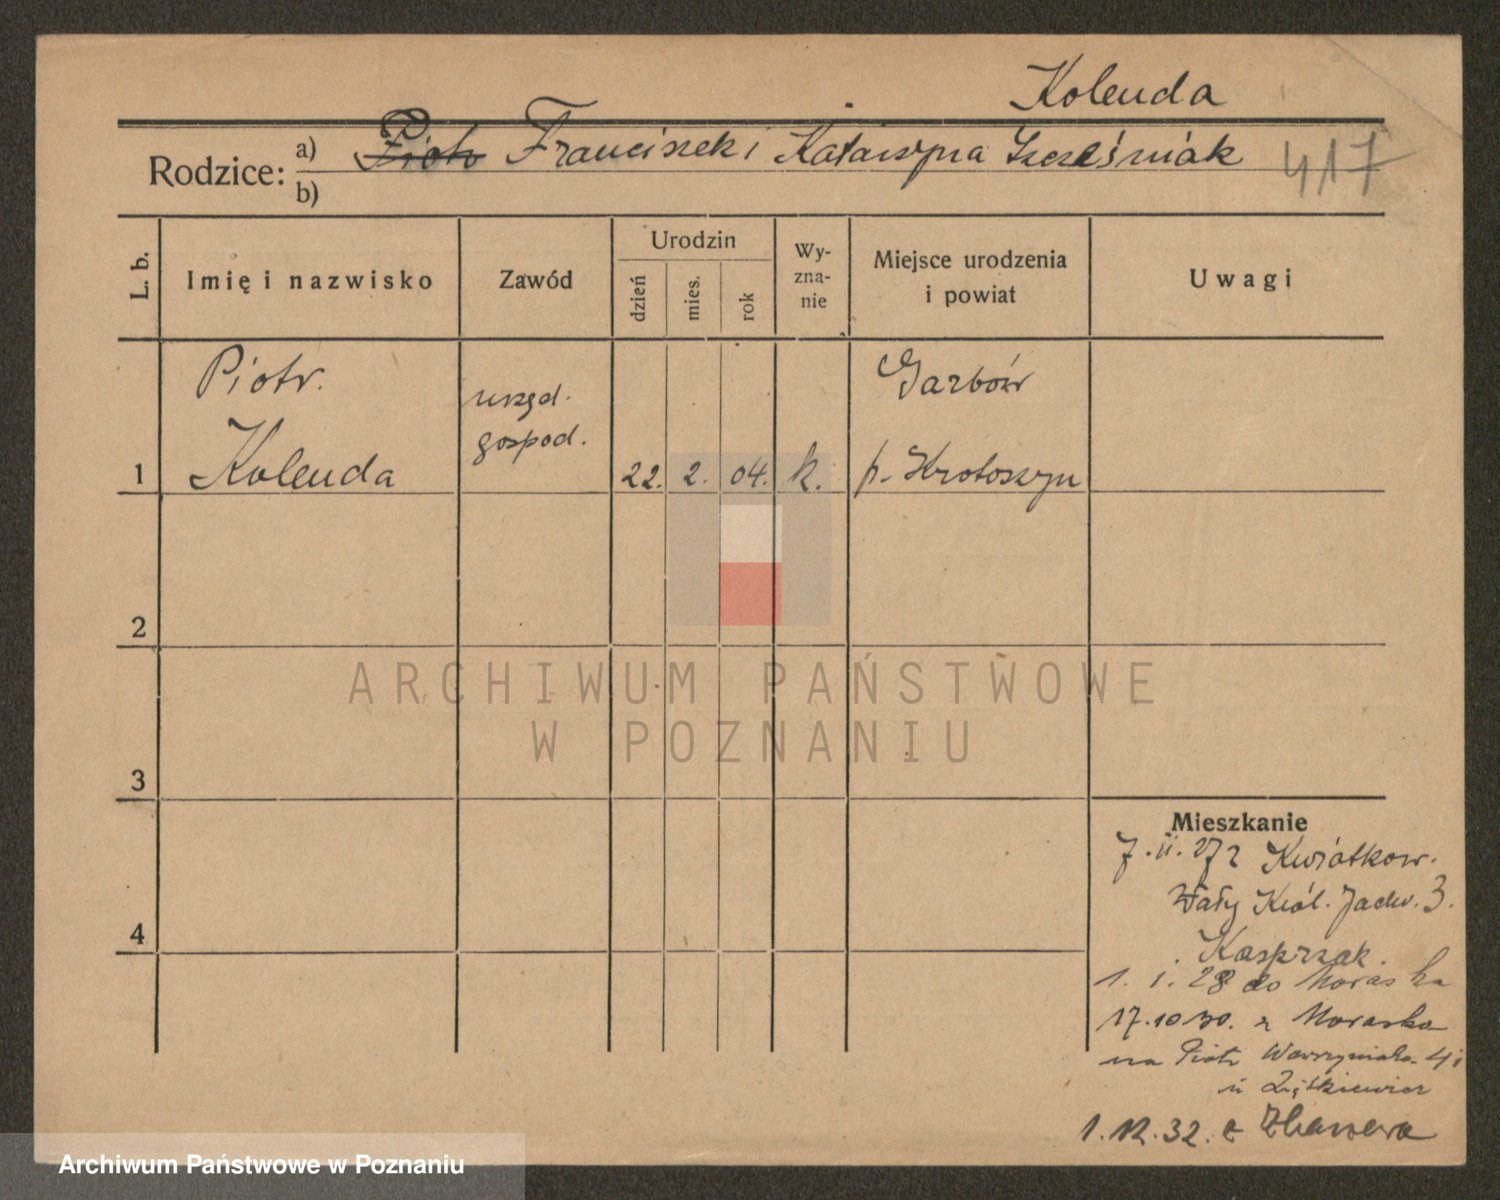 Kolenda
Rodzice: a) Piotr Franciszek i Katarzyna Szcześniak
b)
417
L. b.
Imię i nazwisko
Zawód
Urodzin
dzień
mies.
rok
Wy-
zna-
nie
Miejsce urodzenia
i powiat
Uwagi
1
Piotr.
Kolenda
urzęd.
gospod.
22. 2. 04. k.
Garbów
p. Krotoszyn
2
3
4
ARCHIWUM PAŃSTWOWE
W POZNANIU
Mieszkanie
7. 11. 27 z Kwiatkow.
Wały Król. Jadw. 3.
Kasprzak.
1. 1. 28 do Moraska
17.10 30. z Moraska
na Piotr Wawrzyniaka 41
u
1.12.32. z
Archiwum Państwowe w Poznaniu